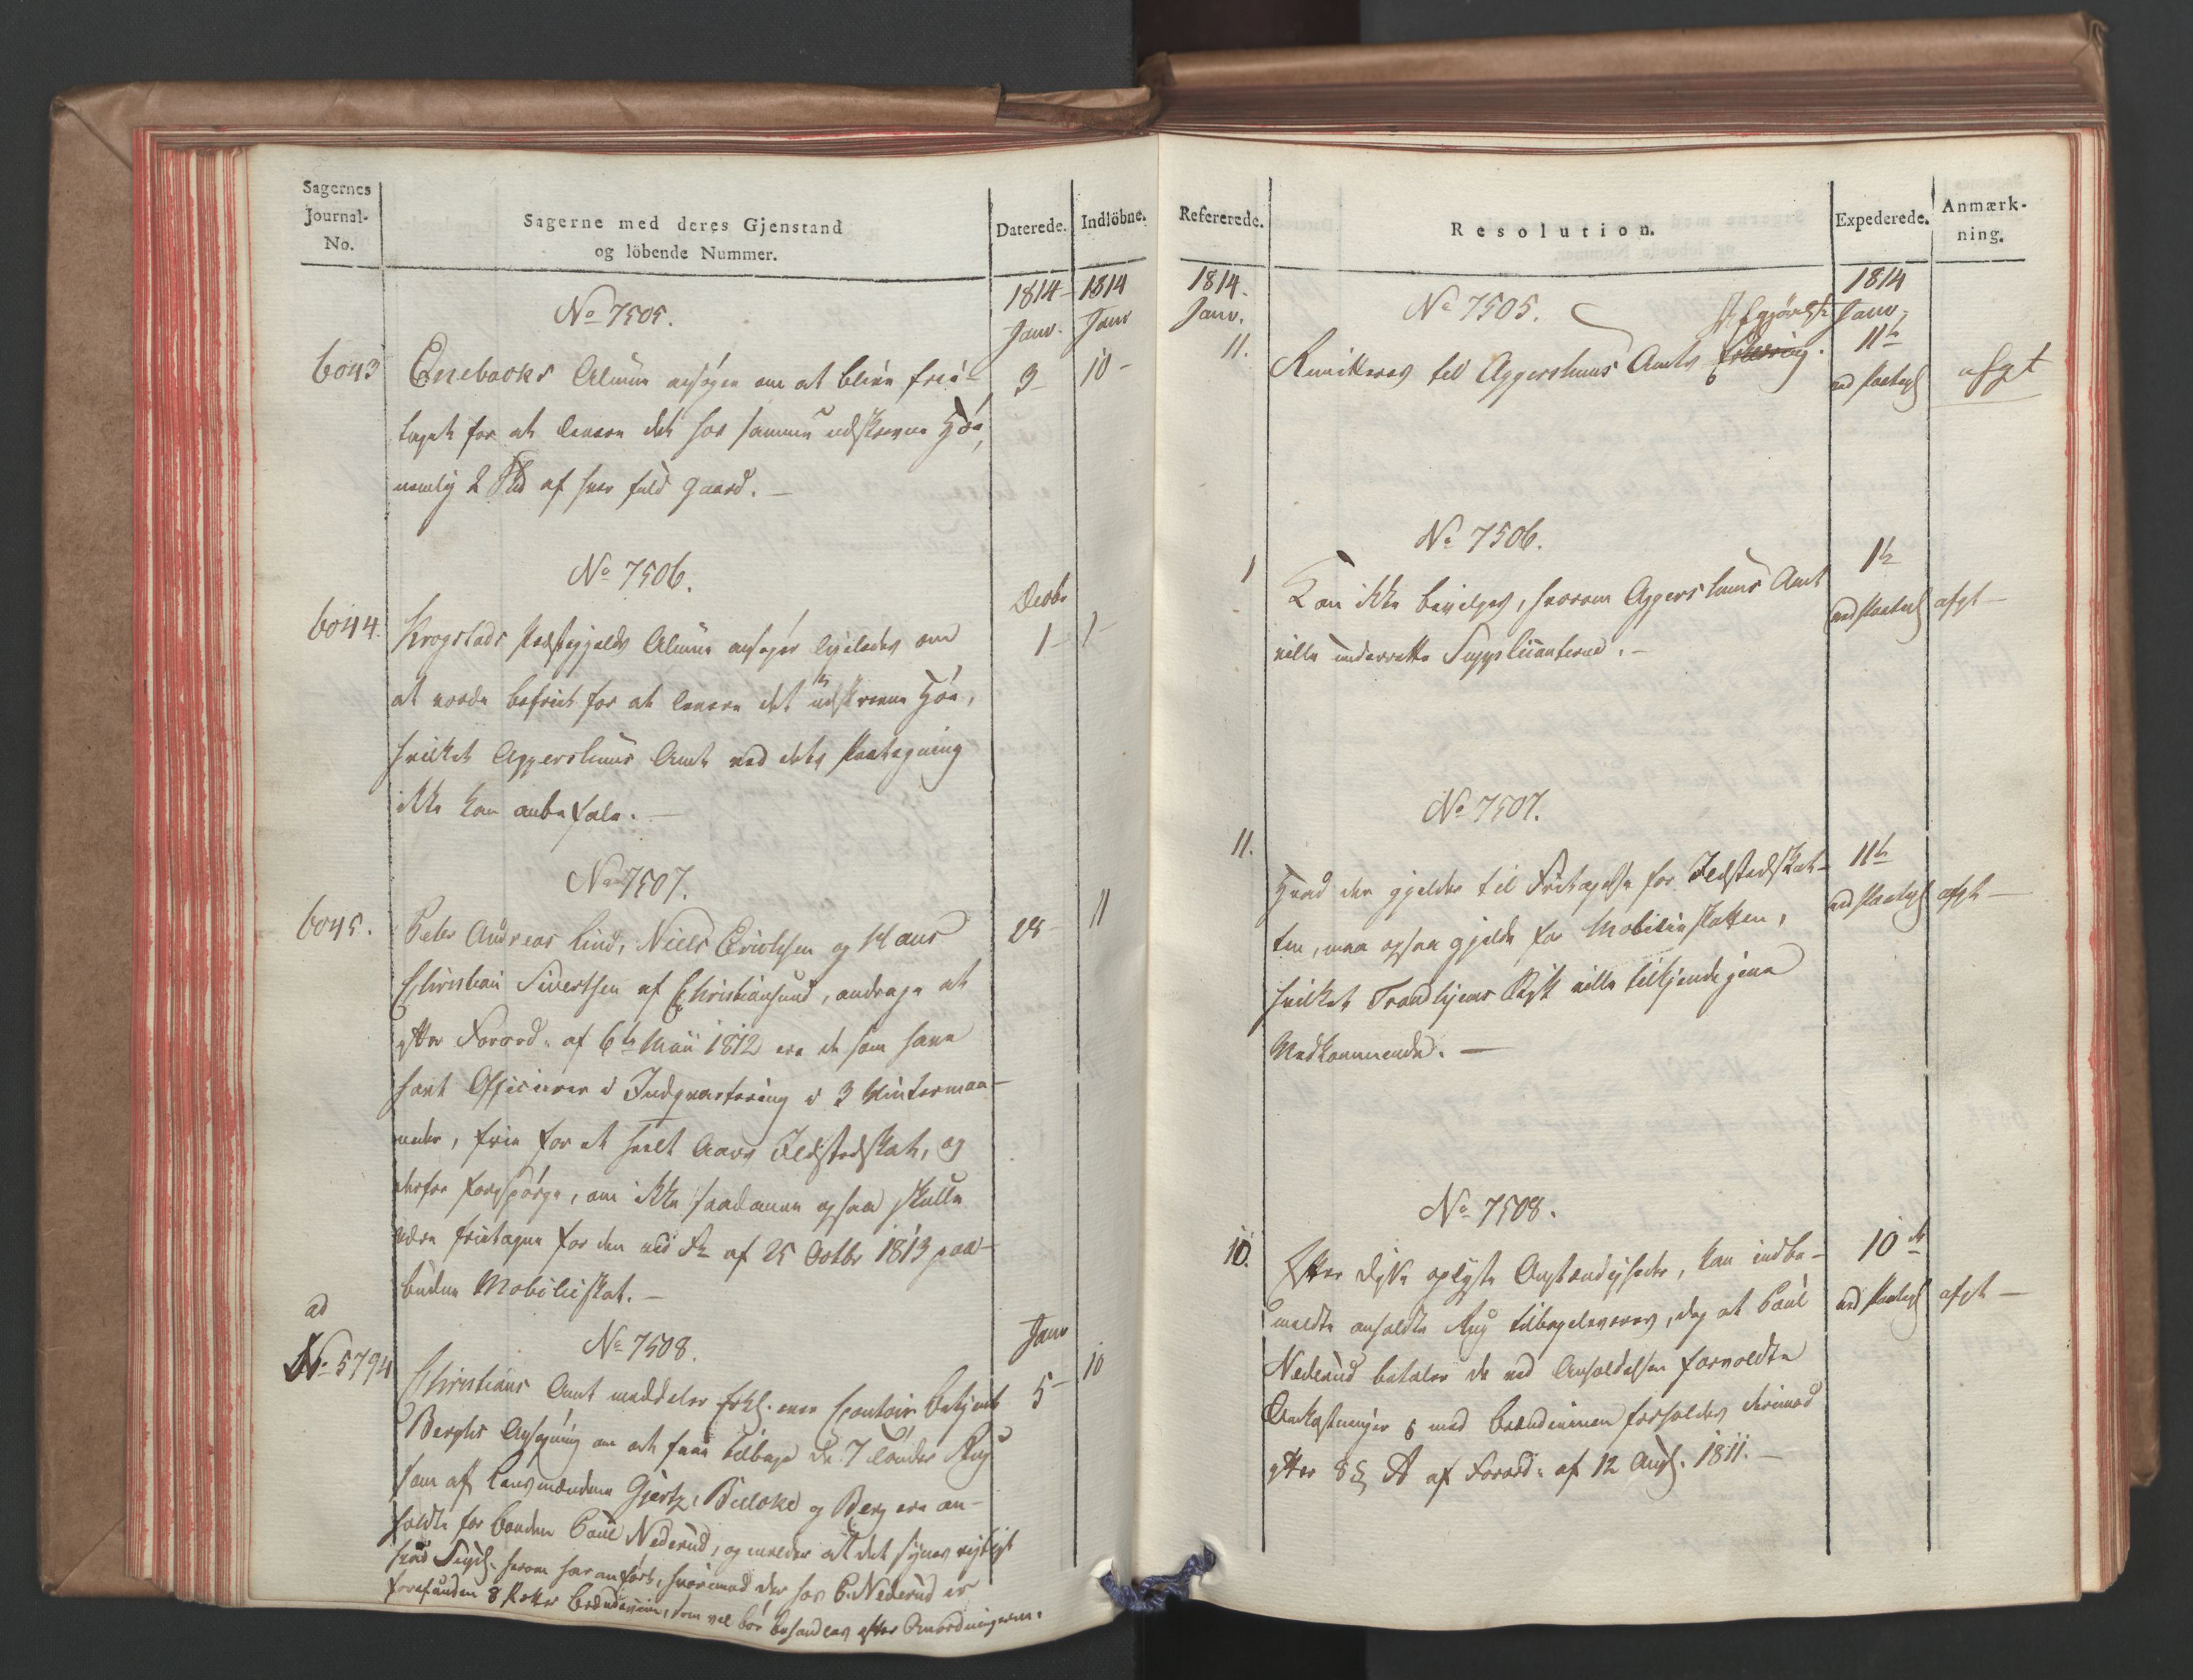 Sagernes
Journal-
No.
Sagerne med deres Gjenstand
og löbende Nummer.
Daterede.
Indlöbne.
1814
1814
Janv.
Janv
No 7505.
6043
Enebaoks Almue ansøger om at blive frie-
taget for at levere det hos samme udskrevne Høe,
nemlig 2 Skd af hver fuld Gaard. –
3
10 –
No 7506.
6044.
Krogstads Præstegjelds Almue ansøger ligeledes om
at vorde befriet for at levere det udskrevne Høe,
hvilket Aggershuus Amt ved dets Paategning
ikke kan anbefale. –
Decbr
1 –
1 –
No 7507.
6045.
Peter Andreas Lind, Niels Erichsen og Hans
Christian Sivertsen af Christiansund, andrage at
efter Forord: af 6te Mai 1812 ere de som have
havt Officierer i Indqvartering i 3 Vintermaa-
neder, frie for et heelt Aars Ildstedskat, og
derfor forespørge, om ikke saadanne ogsaa skulle
være fritagne for den ved Fr af 25 Octbr 1813 paa-
budne Mobilieskat. –
28
11
ad
No 5794
No 7508.
Christians Amt meddeler Erkl. over Contoir Betjent
Berghs Ansøgning om at faae tilbage de 7 Tønder Rug
som af Lensmændene Gjertz, Beloke og Berg ere an-
holdte for Bonden Poul Nederud, og melder at det synes rigtigt
hvad Suppl. herom har anført, hvorimod der hos P. Nederud er
forefunden 8 Potter Brændeviin, som vel bør behandles efter Anordningerne.
Janv
5 –
10
Refererede.
Resolution.
Expederede.
Anmærk-
ning.
1814.
Janv.
1814
Janv.
No 7505.
11.
Remitteres til Aggershuus Amts Erklæring.
Afgjørelse
11te
ved Paategn
afgt
No 7506.
1
Kan ikke bevilges, hvorom Aggershuus Amt
ville underrette Supplicanterne. –
1te
ved Paategn
afgt –
No 7507.
11.
Hvad der gjelder til Fritagelse for Ildstedskat-
ten, maa ogsaa gjelde for Mobilieskatten,
hvilket Trondhjems Stift ville tilkjendegive
Vedkommende. –
11te
ved Paategn
afgt –
No 7508.
10.
Efter disse oplyste Omstændigheder, kan indbe-
meldte anholdte Rug tilbageleveres, dog at Poul
Nederud betaler de ved Anholdelsen forvoldte
Omkostninger & med Brændevinen forholdes derimod
efter 8 § A af Forord: af 12 Aug. 1811. –
10de
ved Paategn
afgt –